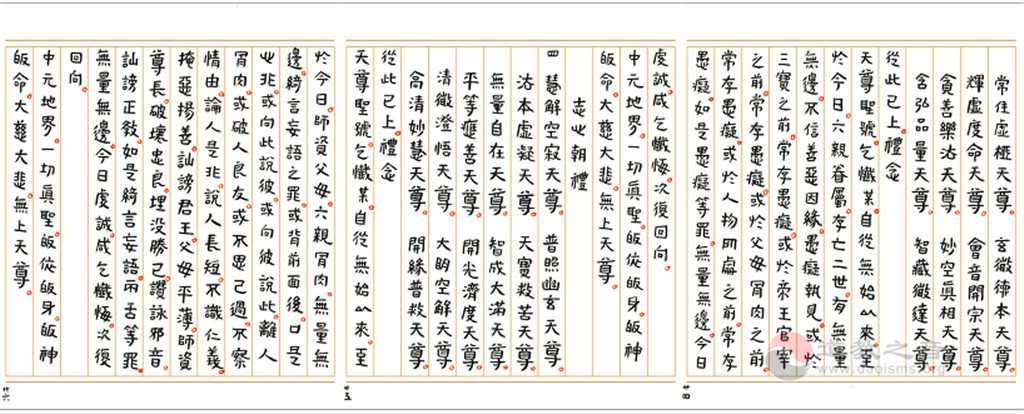 常住虛極天尊 玄微德本天尊
輝虛度命天尊 會音開宗天尊
貪善樂沽天尊 妙空真相天尊
含弘品量天尊 智藏微達天尊
從此已上禮念
天尊聖號乞懺某自從無始以來至
於今日六親眷屬存亡二世有無量
無邊不信善惡因緣愚癡執見或於
三寶之前常存愚癡或於帝王官宰
之前常存愚癡或於父母骨肉之前
常存愚癡或於人物同處之前常存
愚癡如是愚癡等罪無量無邊今日
虔誠咸乞懺悔次復回向
中元地界一切真聖皈依皈身皈神
皈命大慈大悲無上天尊
志心朝禮
四慧解空寂天尊 普照幽玄天尊
沽本虛凝天尊 天寶救苦天尊
無量自在天尊 智成大滿天尊
平等應善天尊 開光濟度天尊
清微澄悟天尊 大明空解天尊
高清妙慧天尊 開緣普救天尊
從此已上禮念
天尊聖號乞懺某自從無始以來至
於今日師資父母六親骨肉無量無
邊綺言妄語之罪或背前面後口是
心非或向此說彼或向彼說此離人
骨肉或破人良友或不思己過不察
情由論人是非說人長短不識仁義
掩惡揚善訕謗君王父母平薄師資
尊長破壞忠良埋沒勝己讚詠邪音
訕謗正教如是綺言妄語兩舌等罪
無量無邊今日虔誠咸乞懺悔次復
回向
中元地界一切真聖皈依皈身皈神
皈命大慈大悲無上天尊
道教之音
www.daoisms.org